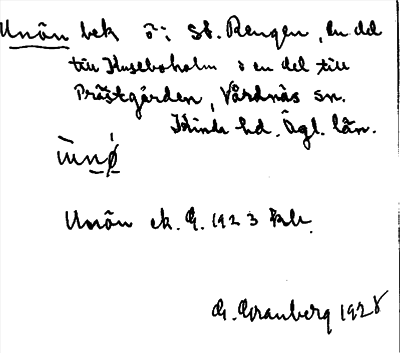 Unön bek ö i St. Rengen, en del
till Huseboholm o en del till
Prästgården, Vårdnäs sn.
Kinda hd. Ögl. län.
Unön ek. G. 1923
G. Granberg 1928